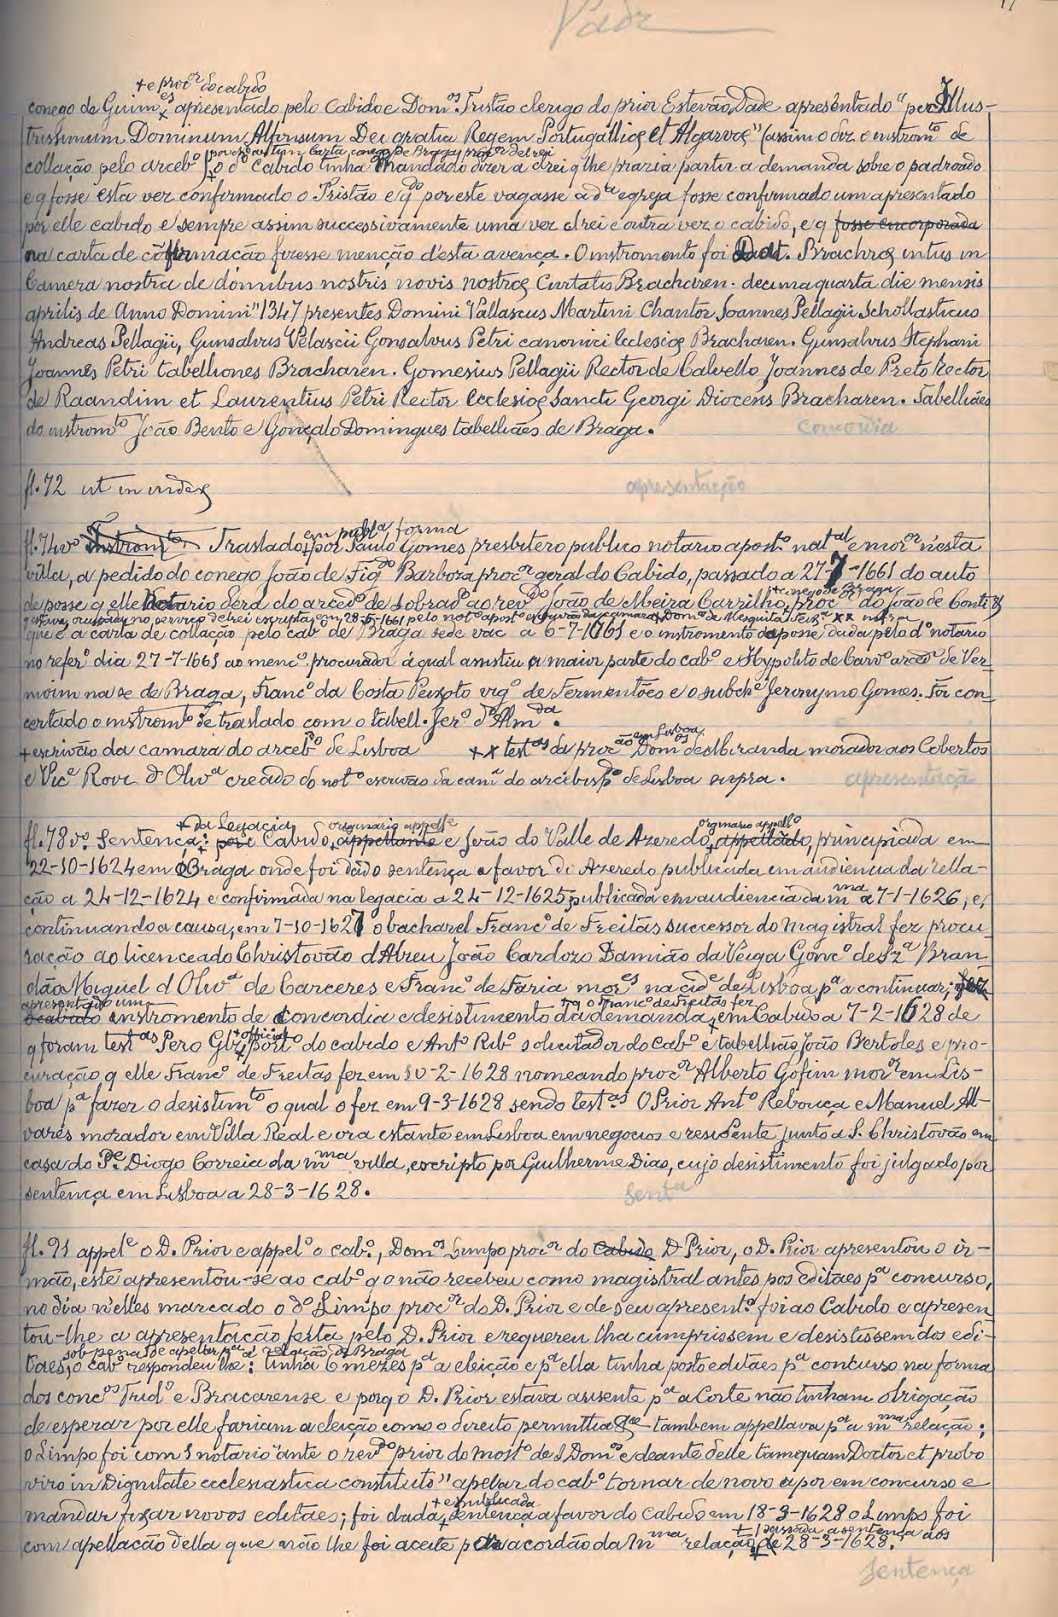 Padr
+ e proc.or do cabido
conego de Guim.es x apresentado pelo Cabido e Dom.os Tristão clerigo do prior Estevão Dade apresentado "per Illus-
trissimum Dominum Alfonsum Dei gratia Regem Portugalliæ et Algarvæ" (assim o diz o instrom.to de
collação pelo arceb.o
o d.o Cabido tinha mandado dizer a elrei q lhe prazia partir a demanda sobre o padroado
e q fosse esta vez confirmado o Tristão e q.do por este vagasse a d.ta egreja fosse confirmado um apresentado
por elle cabido e sempre assim successivamente uma vez elrei e outra vez o cabido, e q fosse encorporada
na carta de confirmação fizesse menção d'esta avença. O instromento foi Dat. Brachræ intus in
Camera nostra de domibus nostris novis nostræ Civitatis Bracharen. decima quarta die mensis
aprilis de Anno Domini" 1347 presentes Domini Vallascus Martini Chantor Joannes Pellagii Schollasticus
Andreas Pellagii, Gunsalvus Velascii Gonsalvus Petri canonici Ecclesiæ Bracharen. Gunsalvus Stephani
Joannes Petri tabelliones Bracharen. Gomesius Pellagii Rector de Calvello Joannes de Preto Rector
de Raandim et Laurentius Petri Rector Ecclesiæ Sancti Georgi Diocens Bracharen. Tabelliães
do instrom.to João Bento e Gonçalo Domingues tabelliães de Braga.
Concordia
fl. 72 ut in index
apresentação
em publ.a forma
fl. 74 v.o Instrom.to Traslado por Paulo Gomes presbitero publico notario apost.o nat.al e mor.or n'esta
villa, a pedido do conego João de Fig.do Barboza proc.or geral do Cabido, passado a 27-7-1661 do auto
+ conego de Braga
de posse q elle Notario dera do arced.o de Sobrad.o ao rev.do João de Meira Carrilho, proc.or do João de Conti
que é a carta de collação pelo cab.o de Braga sede vac. a 6-7-1661 e o instromento da posse dada pelo d.o notario
no refer.o dia 27-7-1661 ao menc.o procurador á qual assistiu a maior parte do cab.o e Hypolito de Carv.o arced.o de Ver-
moim na se de Braga, Franc.o da Costa Peixoto vig.o de Fermentões e o subch.e Jeronymo Gomes. Foi con-
certado o instrom.to de traslado com o tabell. Jer.o d'Alm.da.
+ escrivão da camara do arceb.po de Lisboa x x test.as da proc.ão em Lisboa Dom.os de Miranda morador aos Cobertos
e Vic.e Rovr. d'Oliv.a creado do not.o escrivão da cam.a do arcebisp.o de Lisboa supra.
apresentaçã
+ da Legacia originario appell.e originario appell.o
fl. 78 v.o Sentença: Cabido, appellante e João do Valle de Azeredo, appellado, principiada em
22-10-1624 em Braga onde foi dado sentença a favor do Azeredo publicada em audiencia da rella-
ção a 24-12-1624 e confirmada na legacia a 24-12-1625, publicada em audiencia da m.ma a 7-1-1626, e,
continuando a causa, em 7-10-1627 o bacharel Franc.o de Freitas successor do magistral fez procu-
ração ao licenceado Christovão d'Abreu João Cardozo Damião da Veiga Gonc.o de Sz.a Bran
dão Miguel d'Oliv.a de Carceres e Franc.o de Faria mor.es na cid.e de Lisboa p.a a continuar; fez
apresentado um q o Franc.o de Freitas fez
o cabido instromento de concordia e desistimento da demanda, em Cabido a 7-2-1628 de
+ official
q foram test.as Pero Glz port.o do cabido e Ant.o Rib.o solicitador do Cab.o e tabellião João Bertoles e pro-
curação q elle Franc.o de Freitas fez em 10-2-1628 nomeando proc.or Alberto Gofim mor.or em Lis-
boa p.a fazer o desistim.to o qual o fez em 9-3-1628 sendo test.as O Prior Ant.o Rebouça e Manuel Al-
vares morador em Villa Real e ora estante em Lisboa em negocios e residente junto a S. Christovão em
casa do P.e Diogo Correia da m.ma villa, escripto por Guilherme Dias, cujo desistimento foi julgado por
sentença em Lisboa a 28-3-1628.
Sent.a
fl. 91 appel.e o D. Prior e appel.o o cab.o, Dom.os Limpo proc.or do Cabido D. Prior, o D. Prior apresentou o ir-
mão, este apresentou-se ao cab.o q o não recebeu como magistral antes pos editaes p.a concurso,
no dia n'elles marcado o d.o Limpo proc.or do D. Prior e de seu apresent.o foi ao Cabido e apresen-
tou-lhe a apresentação feita pelo D. Prior e requereu lha cumprissem e desistissem dos edi-
sob pena de apellar p.a a relação de Braga
taes, o cab.o respondeu lhe: tinha 6 mezes p.a a eleição e p.a ella tinha posto editaes p.a concurso na forma
dos conc.os Trid.o e Bracarense e porq o D. Prior estava ausente p.a a Corte não tinham obrigação
de esperar por elle fariam a eleição como o direito permittia tambem appellava p.a a m.ma relação;
o Limpo foi com 1 notario "ante o rev.do prior do most.o de S. Dom.os e deante delle tamquam Doctor et probo
viro in Dignitate ecclesiastica constituto" apellar do cab.o tornar de novo a por em concurso e
+ e publicada
mandar fixar novos editaes; foi dada, sentença a favor do Cabido em 18-3-1628 o Limpo foi
+ passada a sentença aos
com apellação della que não lhe foi aceite p acordão da m.ma relação de 28-3-1628.
Sentença